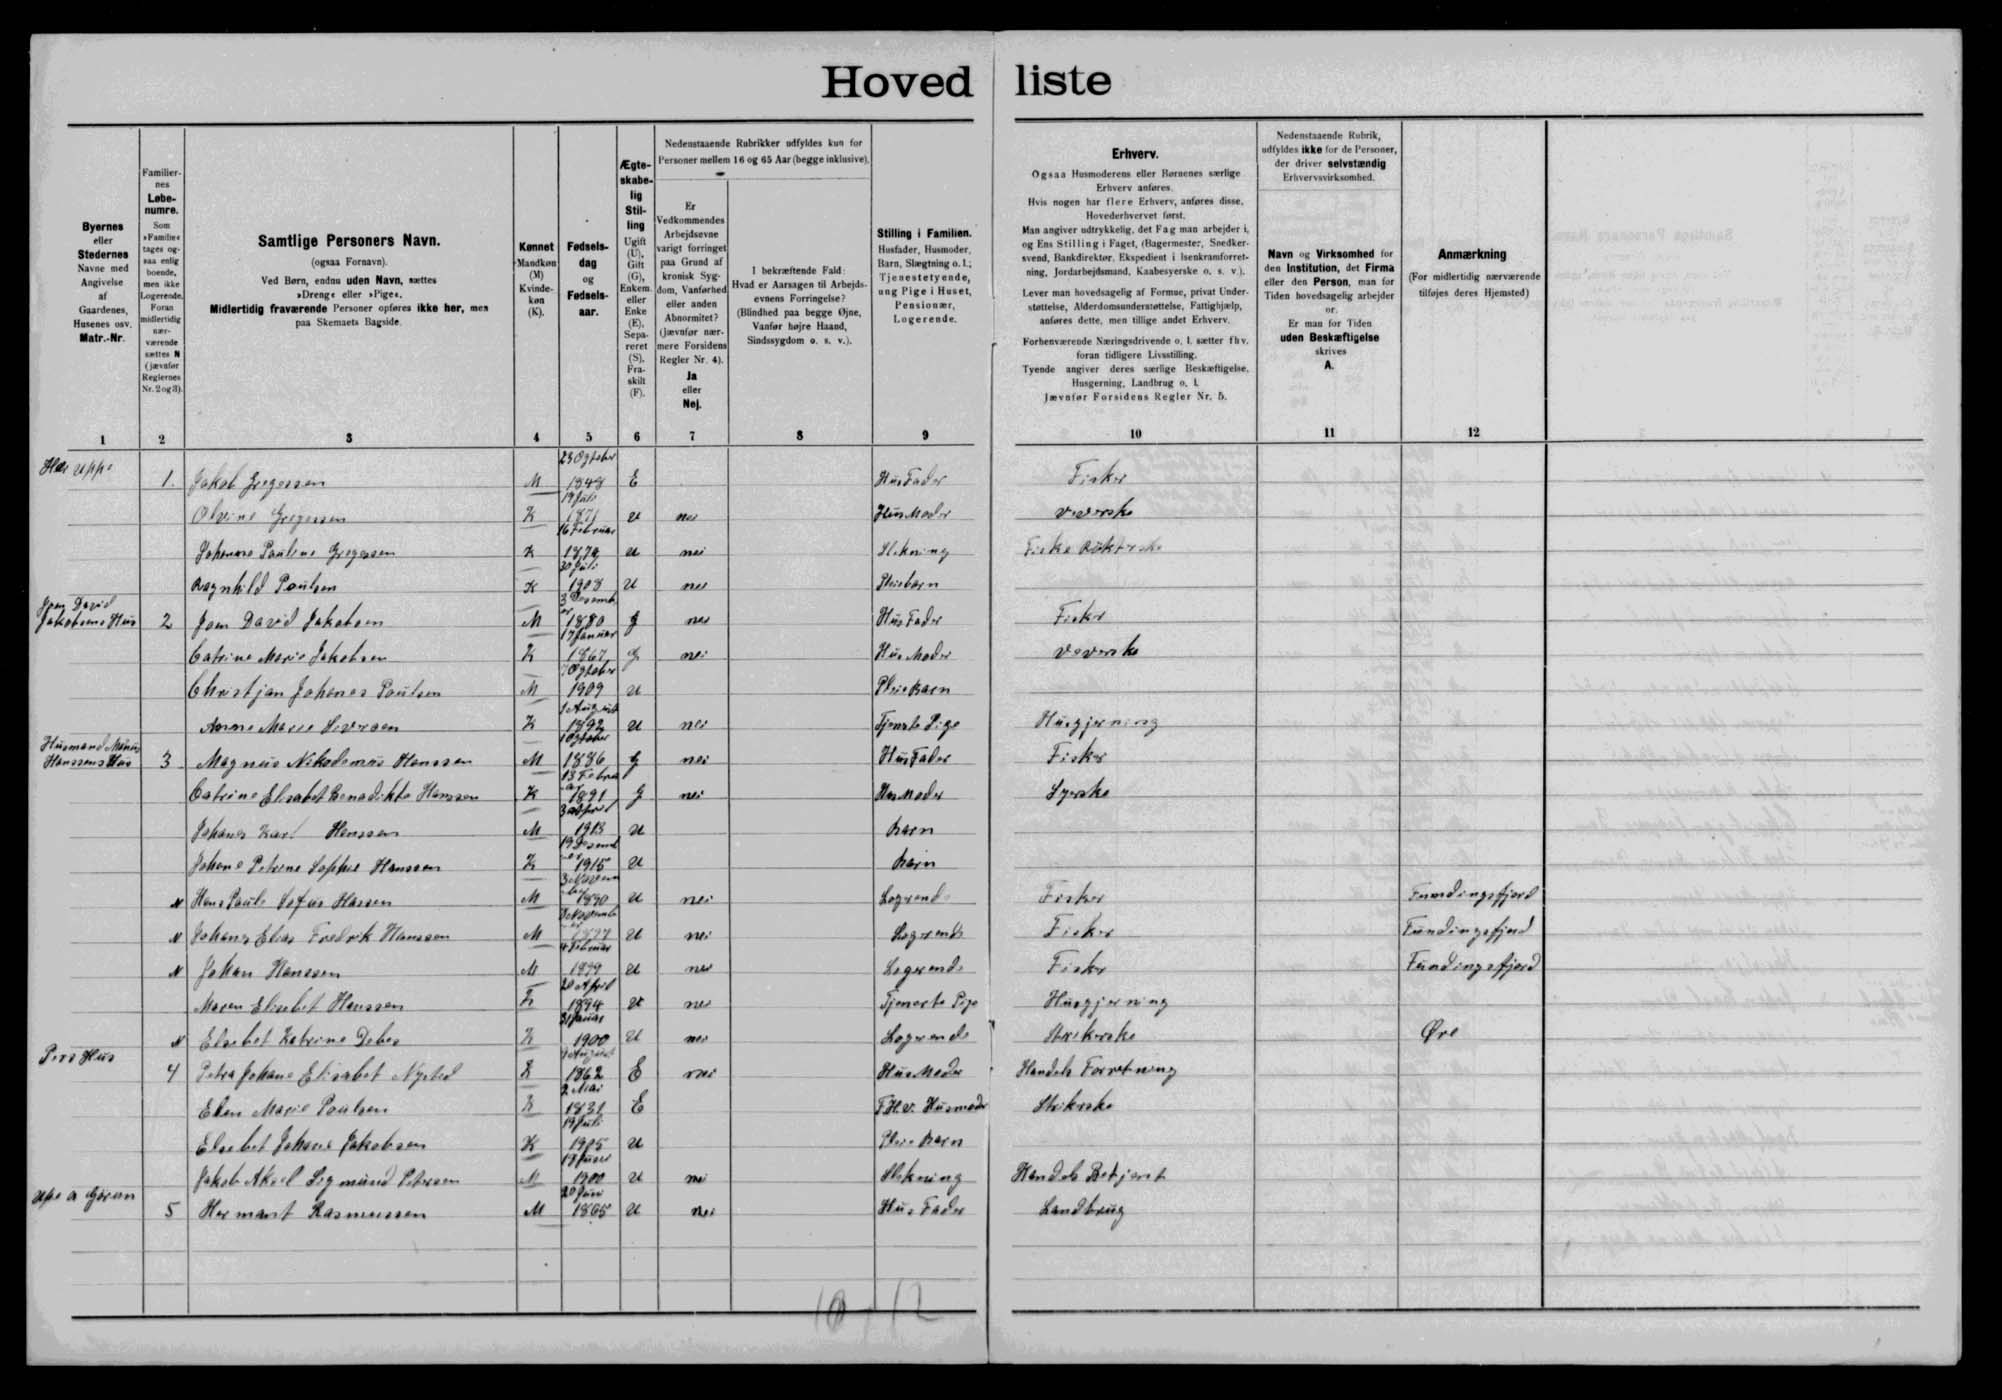 Hovedliste
Byernes
eller
Stedernes
Navne med
Angivelse
af
Gaardenes,
Husenes osv.
Matr.-Nr.
Familier-
nes
Løbe-
numre.
Som
»Familie«
tages og-
saa enlig
boende,
men ikke
Logerende.
Foran
midlertidig
nær-
værende
sættes N
(jævnfør
Reglernes
Nr. 2 og 3).
Samtlige Personers Navn.
(ogsaa Fornavn).
Ved Børn, endnu uden Navn, sættes
»Dreng« eller »Pige«.
Midlertidig fraværende Personer opføres ikke her, men
paa Skemaets Bagside.
Kønnet
Mandkøn
(M)
Kvinde-
køn
(K).
Fødsels-
dag
og
Fødsels-
aar.
Ægte-
skabe-
lig
Stil-
ling
Ugift
(U),
Gift
(G),
Enkem.
eller
Enke
(E),
Sepa-
reret
(S),
Fra-
skilt
(F).
Nedenstaaende Rubrikker udfyldes kun for
Personer mellem 16 og 65 Aar (begge inklusive).
Er
Vedkommendes
Arbejdsevne
varigt forringet
paa Grund af
kronisk Syg-
dom, Vanførhed
eller anden
Abnormitet?
(jævnfør nær-
mere Forsidens
Regler Nr. 4).
Ja
eller
Nej.
I bekræftende Fald:
Hvad er Aarsagen til Arbejds-
evnens Forringelse?
(Blindhed paa begge Øjne,
Vanfør højre Haand,
Sindssygdom o. s. v.).
Stilling i Familien.
Husfader, Husmoder,
Barn, Slægtning o. l.;
Tjenestetyende,
ung Pige i Huset,
Pensionær,
Logerende.
Erhverv.
Ogsaa Husmoderens eller Børnenes særlige
Erhverv anføres.
Hvis nogen har flere Erhverv, anføres disse,
Hovederhvervet først.
Man angiver udtrykkelig, det Fag man arbejder i,
og Ens Stilling i Faget, (Bagermester, Snedker-
svend, Bankdirektør, Ekspedient i Isenkramforret-
ning, Jordarbejdsmand, Kaabesyerske o. s. v.).
Lever man hovedsagelig af Formue, privat Under-
støttelse, Alderdomsunderstøttelse, Fattighjælp,
anføres dette, men tillige andet Erhverv.
Forhenværende Næringsdrivende o. l. sætter fhv.
foran tidligere Livsstilling.
Tyende angiver deres særlige Beskæftigelse,
Husgerning, Landbrug o. l.
Jævnfør Forsidens Regler Nr. 5.
Nedenstaaende Rubrik,
udfyldes ikke for de Personer,
der driver selvstændig
Erhvervsvirksomhed.
Navn og Virksomhed for
den Institution, det Firma
eller den Person, man for
Tiden hovedsagelig arbejder
for.
Er man for Tiden
uden Beskæftigelse
skrives
A.
Anmærkning
(For midlertidig nærværende
tilføjes deres Hjemsted)
1 2 3 4 5 6 7 8 9 10 11 12
uppi 1. Jakob Gregersen M 23 Ogtober 1848 E HusFader Fisker
Olvine Gregersen K 19 Juli 1871 U nei HusModer Veverske
Johanne Pauline Gregersen K 16 Februar 1879 U nei Slekning Fiske
Ragnhild Poulsen K 30 Juli 1908 U nei Pleiebarn
Joen David Jakobsens Hus 2 Joen David Jakobsen M 3 Desember 1880 G nei HusFader Fisker
Catrine Marie Jakobsen K 17 Januar 1867 G nei HusModer Veverske
Christjan Johanes Poulsen M 7 Ogtober 1909 U Pleiebarn
Anne Marie Sivertsen K 1 August 1892 U nei Tjeneste Pige Husgjerning
Husmand Månus Hanssens Hus 3 Magnus Nikodemus Hanssen M 1 Ogtober 1886 G nei HusFader Fisker
Catrine Elisabet Benadikte Hanssen K 13 Februar 1891 G nei HusModer Syerske
Johanes Karl Hanssen M 3 April 1913 U barn
Johane Petrine Sophie Hanssen K 19 Desember 1915 U barn
N Hans Pauli Sofus Hansen M 3 November 1890 U nei Logrende Fisker Funding­sfjord
N Johanes Elias Fredrik Hanssen M November U nei Logrende Fisker Fundingsfjord
N Johan Hanssen M 4 Februar 1899 U nei Logrende Fisker Fundingsfjord
Maren Elisebet Hanssen K 20 April 1894 U nei Tjeneste Pige Husgjerning
N Elsebet Katrine Debes K 31 Januar 1900 U nei Logrende Strikerske Øre
Pers Hus 4 Petra Johane Elisabet Nysted K August 1862 E nei HusModer Handels Forretning
Elen Marie Poulsen K 2 Mai 1831 E F.H.v. Husmoder Strikerske
Elsebet Johane Jakobsen K 19 Juli 1905 U Pleie barn
Jakob Aksel Sigmund Petersen M 1900 U nei Slekning Handels Betjent
5 Hermant Rasmussen M 20 Juni 1865 U nei HusFader Landbrug
10 - 12